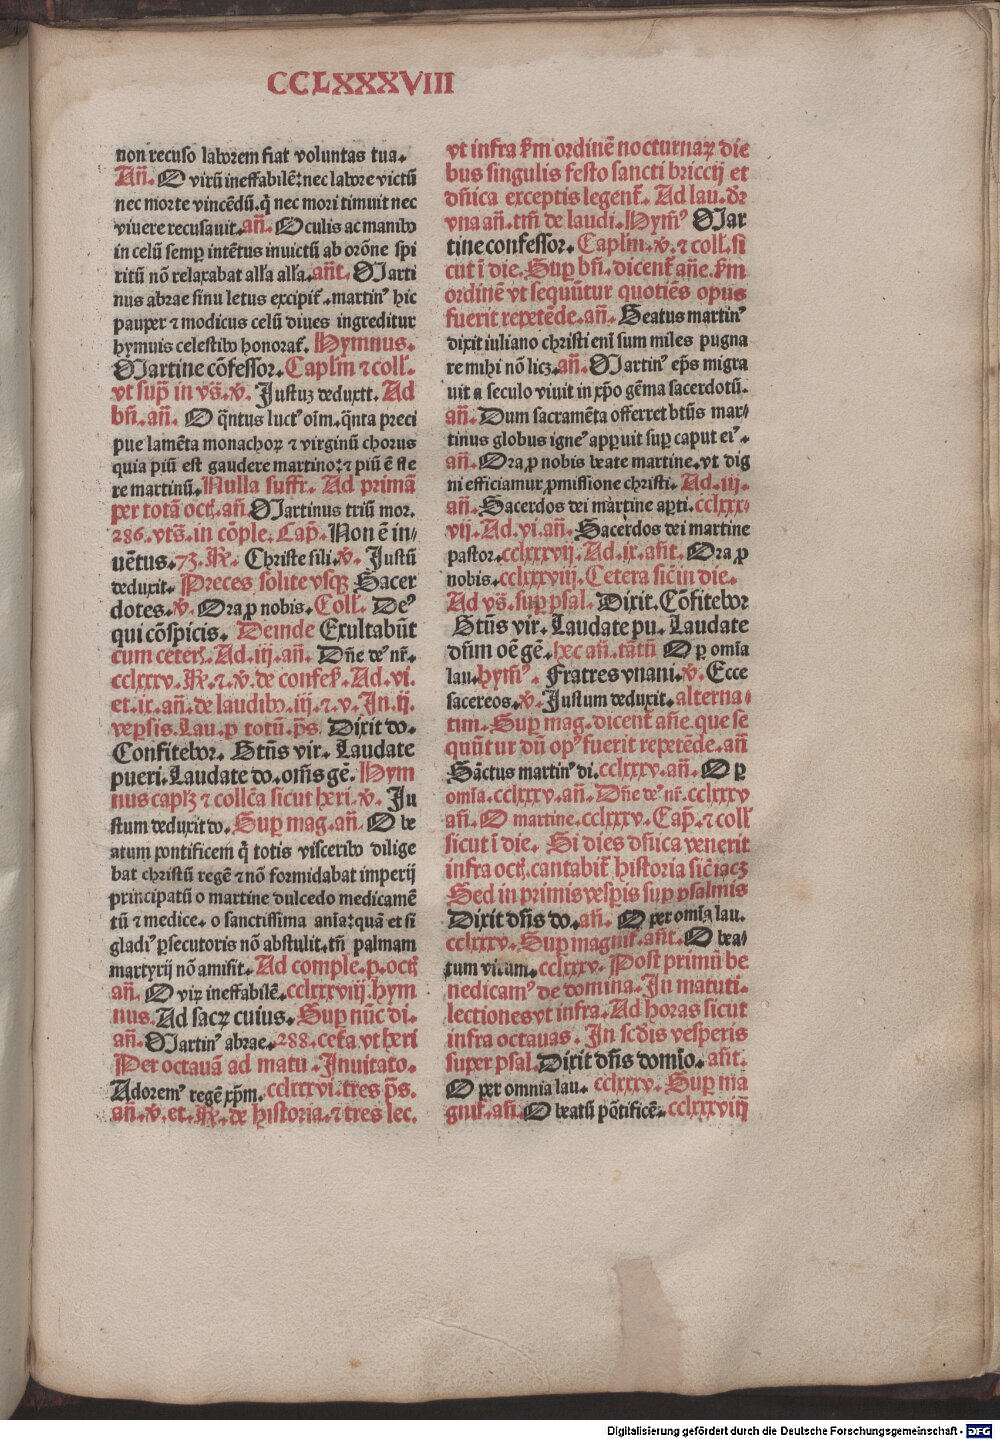 CCLXXXVIII
non recuso laborem fiat voluntas tua.
Añ. O virū ineffabilē: nec labore victū
nec morte vincēdū. q̄ nec mori timuit nec
viuere recusauit. añ. Oculis ac manibꝰ
in celū semꝑ intētus inuictū ab orōne spi
ritū nō relaxabat alľa alľa. añt. Marti
nus abrae sinu letus excipit̄. martinꝰ hic
pauper ⁊ modicus celū diues ingreditur
hymnis celestibꝰ honorat̄. Hymnus.
Martine cōfessor. Capľm ⁊ coll̄.
vt sup̄ in vs̄. v̄. Justuꝫ deduxit. Ad
bñ. añ. O q̄ntus luctꝰ oīm. q̄nta preci
pue lamēta monachoꝝ ⁊ virginū chorus
quia piū est gaudere martino: ⁊ piū ē fle
re martinū. Nulla suffr̄. Ad primā
per totā oct̄. añ. Martinus triū mor.
286. vts̄. in cōple. Cap̄. Non ē in/
uētus. 73. R̄. Christe fili. v̄. Justū
deduxit. Preces solite vsqꝫ Sacer
dotes. v̄. Ora ꝓ nobis. Coll̄. Deꝰ
qui cōspicis. Deinde Exultabūt
cum ceteꝝ. Ad. iij. añ. Dñe deꝰ nr̄.
cclxxxv. R̄. ⁊. v̄. de confes̄. Ad. vi.
et. ix. añ. de laudibꝰ. iij. ⁊. v. In. ij.
veꝑsis. Lau. ꝑ totū. ps̄. Dixit do.
Confitebor. Btūs vir. Laudate
pueri. Laudate do. om̄s gē. Hym
nus capľꝫ ⁊ collc̄a sicut heri. v̄. Ju
stum deduxit do. Suꝑ mag. añ. O be
atum pontificem q̄ totis visceribꝰ dilige
bat christū regē ⁊ nō formidabat imperij
principatū o martine dulcedo medicamē
tū ⁊ medice. o sanctissima anīa: quā et si
gladiꝰ ꝑsecutoris nō abstulit. tn̄ palmam
martyrij nō amisit. Ad comple. ꝑ. oct̄
añ. O viꝝ ineffabilē. cclxxxviij. hym
nus. Ad sacꝝ cuius. Suꝑ nūc di.
añ. Martinꝰ abrae. 288. cet̄a vt heri
Per octauā ad matu. Inuitato.
Adoremꝰ regē xp̄m. cclxxxvi. tres ps̄.
añ. v̄. et. R̄. de historia. ⁊ tres lec.
vt infra s̄m ordinē nocturnaꝝ die
bus singulis festo sancti briccij et
dñica exceptis legent̄. Ad lau. dr̄
vna añ. tm̄ de laudi. Hymꝰ Mar
tine confessor. Capľm. v̄. ⁊ coll̄. si
cut ī die. Suꝑ bñ. dicent̄ añe. s̄m
ordinē vt sequūtur quotiēs opus
fuerit repetēde. añ. Beatus martinꝰ
dixit iuliano christi enī sum miles pugna
re mihi nō licꝫ. añ. Martinꝰ ep̄s migra
uit a seculo viuit in xp̄o gēma sacerdotū.
añ. Dum sacramēta offerret btūs mar/
tinus globus igneꝰ apꝑuit suꝑ caput eiꝰ.
añ. Ora ꝓ nobis beate martine. vt dig
ni efficiamur ꝓmissione christi. Ad. iij.
añ. Sacerdos dei martine aꝑti. cclxxx/
vij. Ad. vi. añ. Sacerdos dei martine
pastor. cclxxxvij. Ad. ix. añt. Ora ꝓ
nobis. cclxxxviij. Cetera sic̄ in die.
Ad vs̄. suꝑ psal. Dixit. Cōfitebor
Btūs vir. Laudate pu. Laudate
dñm oē gē. hec añ. tātū O ꝑ omīa
lau. hymꝰ. Fratres vnani. v̄. Ecce
sacereos. v̄. Justum deduxit. alterna/
tim. Suꝑ mag. dicent̄ añe. que se
quūtur dū opꝰ fuerit repetēde. añ
Sāctus martinꝰ di. cclxxxv. añ. O ꝑ
omīa. cclxxxv. añ. Dñe deꝰ nr̄. cclxxxv
añ. O martine. cclxxxv. Cap̄. ⁊ coll̄
sicut ī die. Si dies dñica venerit
infra oct̄. cantabit̄ historia sic̄ iacꝫ
Sed in primis vesp̄is suꝑ psalmis
Dixit dñs do. añ. O per omīa lau.
cclxxxv. Suꝑ magnif̄. añt. O bea/
tum virum. cclxxxv. Post primū be
nedicamꝰ de domina. In matuti.
lectiones vt infra. Ad horas sicut
infra octauas. In scd̄is vesperis
super psal. Dixit dñs domīo. añt.
O per omnia lau. cclxxxv. Suꝑ ma
gnif̄. añ. O beatū pōtificē. cclxxxviij
Digitalisierung gefördert durch die Deutsche Forschungsgemeinschaft - DFG